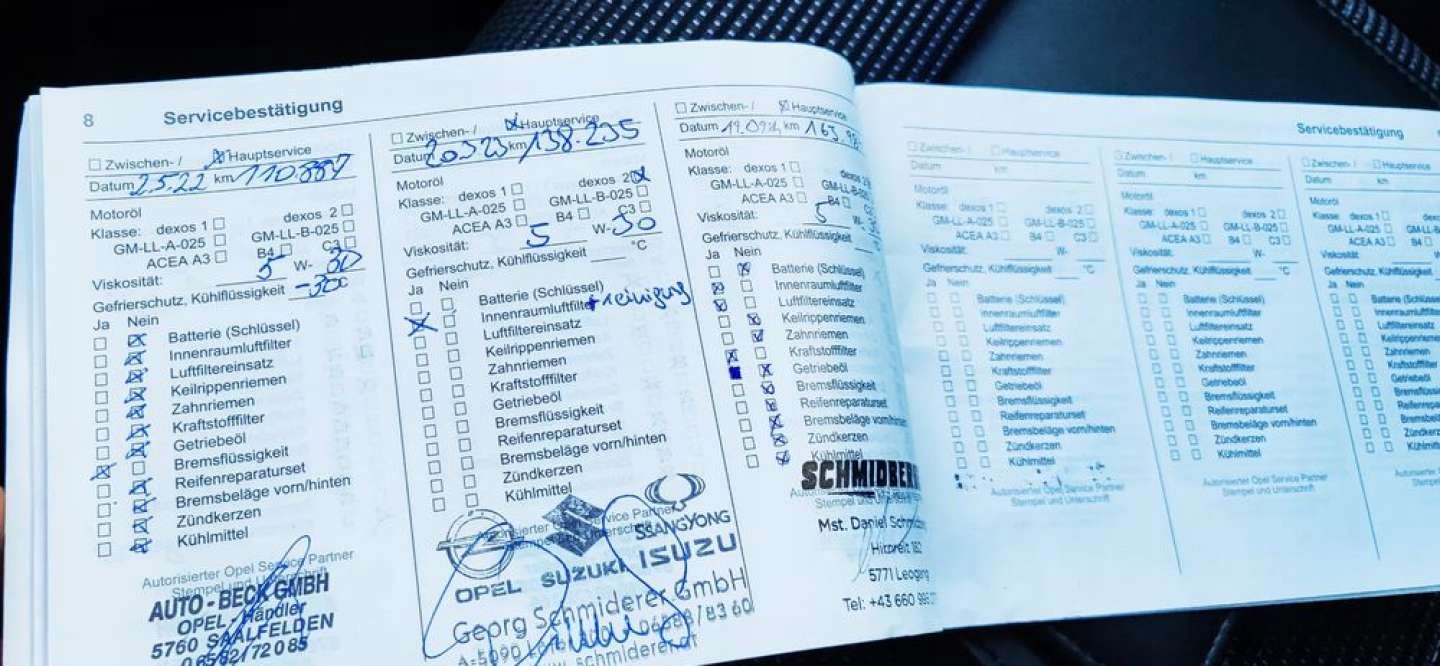 8 Servicebestätigung
Zwischen- / Hauptservice
Datum 2.5.22 km 110.887
Motoröl
Klasse: dexos 1 dexos 2
GM-LL-A-025 GM-LL-B-025
ACEA A3 B4 C3
Viskosität: 5 W- 30
Gefrierschutz, Kühlflüssigkeit -30 °C
Ja Nein
Batterie (Schlüssel)
Innenraumluftfilter
Luftfiltereinsatz
Keilrippenriemen
Zahnriemen
Kraftstofffilter
Getriebeöl
Bremsflüssigkeit
Reifenreparaturset
Bremsbeläge vorn/hinten
Zündkerzen
Kühlmittel
Autorisierter Opel Service Partner
Stempel und Unterschrift
AUTO - BECK GMBH
OPEL - Händler
5760 SAALFELDEN
06582/72085
Zwischen- / Hauptservice
Datum 20323 km 138.235
Motoröl
Klasse: dexos 1 dexos 2
GM-LL-A-025 GM-LL-B-025
ACEA A3 B4 C3
Viskosität: 5 W- 30
Gefrierschutz, Kühlflüssigkeit °C
Ja Nein
Batterie (Schlüssel)
Innenraumluftfilter + reinigung
Luftfiltereinsatz
Keilrippenriemen
Zahnriemen
Kraftstofffilter
Getriebeöl
Bremsflüssigkeit
Reifenreparaturset
Bremsbeläge vorn/hinten
Zündkerzen
Kühlmittel
Autorisierter Opel Service Partner
Stempel und Unterschrift
SSANGYONG
OPEL SUZUKI ISUZU
Georg Schmiderer GmbH
A-5090 /83 60
schmiderer.at
Zwischen- / Hauptservice
Datum km 163.98
Motoröl
Klasse: dexos 1 dexos 2
GM-LL-A-025 GM-LL-B
ACEA A3 B4 C3
Viskosität: 5 W-
Gefrierschutz, Kühlflüssigkeit
Ja Nein
Batterie (Schlüssel)
Innenraumluftfilter
Luftfiltereinsatz
Keilrippenriemen
Zahnriemen
Kraftstofffilter
Getriebeöl
Bremsflüssigkeit
Reifenreparaturset
Bremsbeläge vorn/hinten
Zündkerzen
Kühlmittel
SCHMIDBER
Mst. Daniel
5771 Leogang
Tel: +43 660
Servicebestätigung
Zwischen- / Hauptservice
Datum km
Motoröl
Klasse: dexos 1 dexos 2
GM-LL-A-025 GM-LL-B-025
ACEA A3 B4 C3
Viskosität: W-
Gefrierschutz, Kühlflüssigkeit °C
Ja Nein
Batterie (Schlüssel)
Innenraumluftfilter
Luftfiltereinsatz
Keilrippenriemen
Zahnriemen
Kraftstofffilter
Getriebeöl
Bremsflüssigkeit
Reifenreparaturset
Bremsbeläge vorn/hinten
Zündkerzen
Kühlmittel
Autorisierter Opel Service Partner
Stempel und Unterschrift
Zwischen- / Hauptservice
Datum km
Motoröl
Klasse: dexos 1 dexos 2
GM-LL-A-025 GM-LL-B-025
ACEA A3 B4 C3
Viskosität: W-
Gefrierschutz, Kühlflüssigkeit °C
Ja Nein
Batterie (Schlüssel)
Innenraumluftfilter
Luftfiltereinsatz
Keilrippenriemen
Zahnriemen
Kraftstofffilter
Getriebeöl
Bremsflüssigkeit
Reifenreparaturset
Bremsbeläge vorn/hinten
Zündkerzen
Kühlmittel
Autorisierter Opel Service Partner
Stempel und Unterschrift
Zwischen- / Hauptservice
Datum km
Motoröl
Klasse: dexos 1 dexos 2
GM-LL-A-025
ACEA A3 B4
Viskosität: W-
Gefrierschutz, Kühlflüssigkeit
Ja Nein
Batterie (Schlüssel)
Innenraumluftfilter
Luftfiltereinsatz
Keilrippenriemen
Zahnriemen
Kraftstofffilter
Getriebeöl
Bremsflüssigkeit
Reifenrepara
Bremsbeläg
Zündkerz
Kühlmitt
Autorisierter Opel
Stempel u